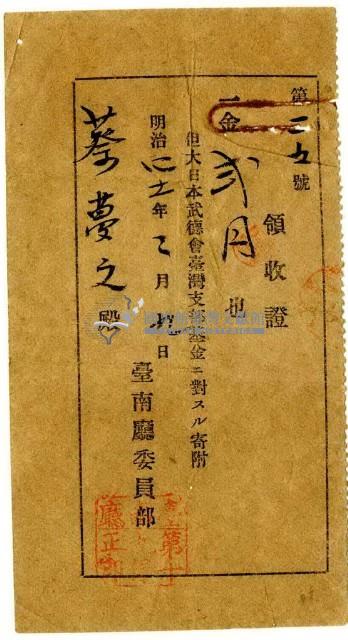 第二五號
領收證
一金 弐円 也
但大日本武德會臺灣支部基金ニ對スル寄附
明治四十一年二月 日
臺南廳委員部
蔡夢之殿